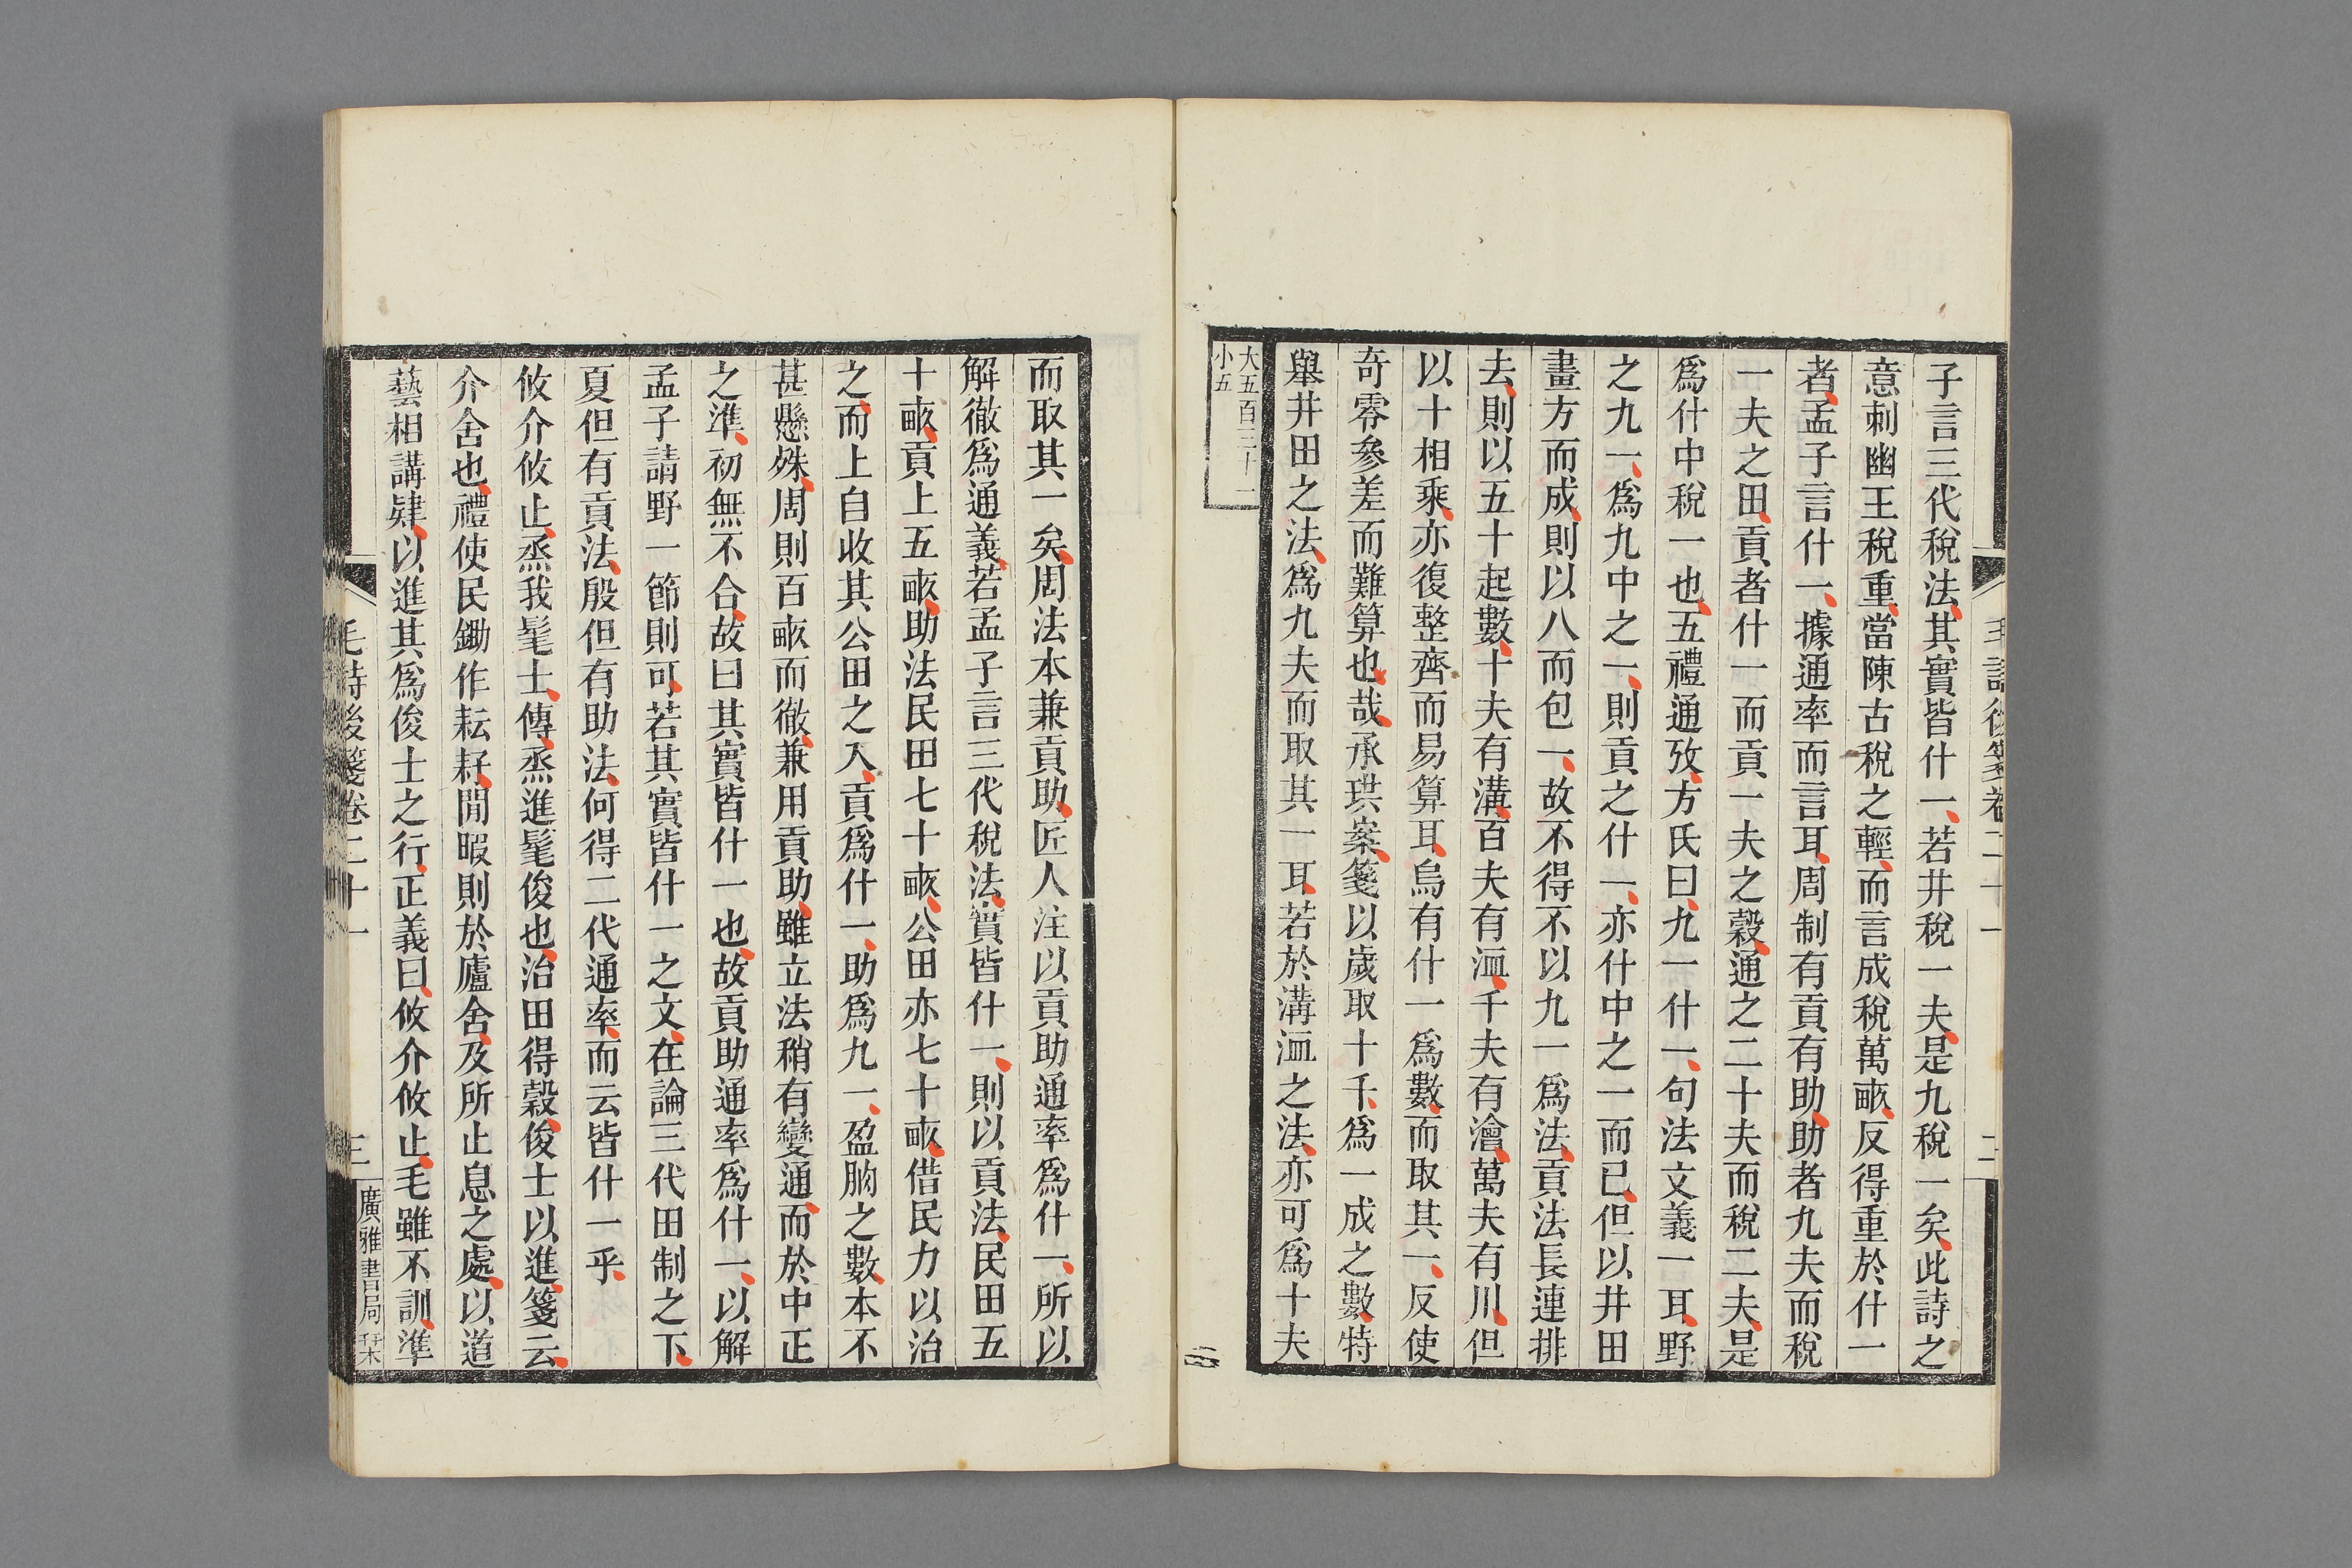 毛詩後箋卷二十一
二
子言三代稅法其實皆什一若井稅一夫是九稅一矣此詩之
意刺幽王稅重當陳古稅之輕而言成稅萬畞反得重於什一
者孟子言什一據通率而言耳周制有貢有助助者九夫而稅
一夫之田貢者什一而貢一夫之穀通之二十夫而稅二夫是
爲什中稅一也五禮通攷方氏曰九一什一句法文義一耳野
之九一爲九中之一則貢之什一亦什中之一而已但以井田
畫方而成則以八而包一故不得不以九一爲法貢法長連排
去則以五十起數十夫有溝百夫有洫千夫有澮萬夫有川但
以十相乘亦復整齊而易算耳烏有什一爲數而取其一反使
奇零參差而難算也哉承珙案箋以歲取十千爲一成之數特
舉井田之法爲九夫而取其一耳若於溝洫之法亦可爲十夫
大五百三十二
小五
而取其一矣周法本兼貢助匠人注以貢助通率爲什一所以
解徹爲通義若孟子言三代稅法實皆什一則以貢法民田五
十畞貢上五畞助法民田七十畞公田亦七十畞借民力以治
之而上自收其公田之入貢爲什一助爲九一盈朒之數本不
甚懸殊周則百畞而徹兼用貢助雖立法稍有變通而於中正
之準初無不合故曰其實皆什一也故貢助通率爲什一以解
孟子請野一節則可若其實皆什一之文在論三代田制之下
夏但有貢法殷但有助法何得二代通率而云皆什一乎
攸介攸止烝我髦士傳烝進髦俊也治田得穀俊士以進箋云
介舍也禮使民鋤作耘耔閒暇則於廬舍及所止息之處以道
藝相講肄以進其爲俊士之行正義曰攸介攸止毛雖不訓準
毛詩後箋卷二十一
三
廣雅書局栞